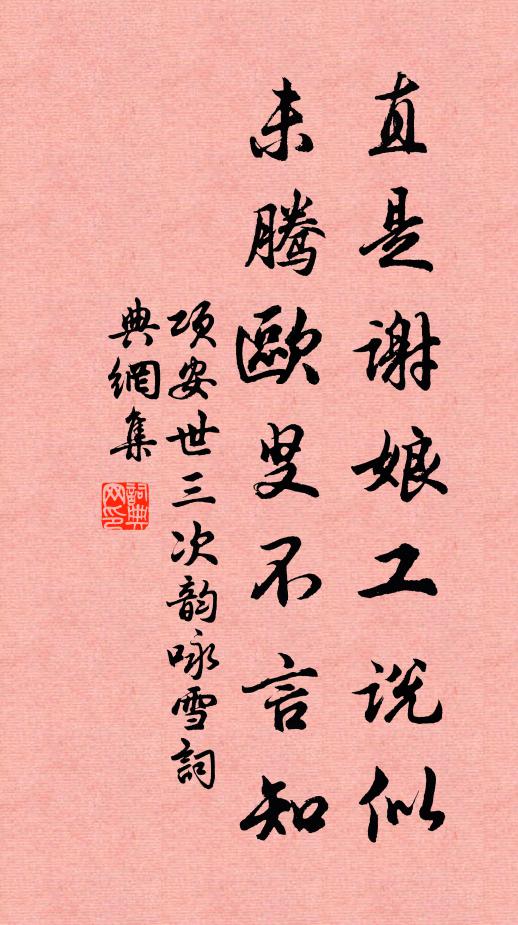 直是謝娘工說似
未騰歐叟不言知
項安世三次韵咏雪詞
典網集
詞典
网印